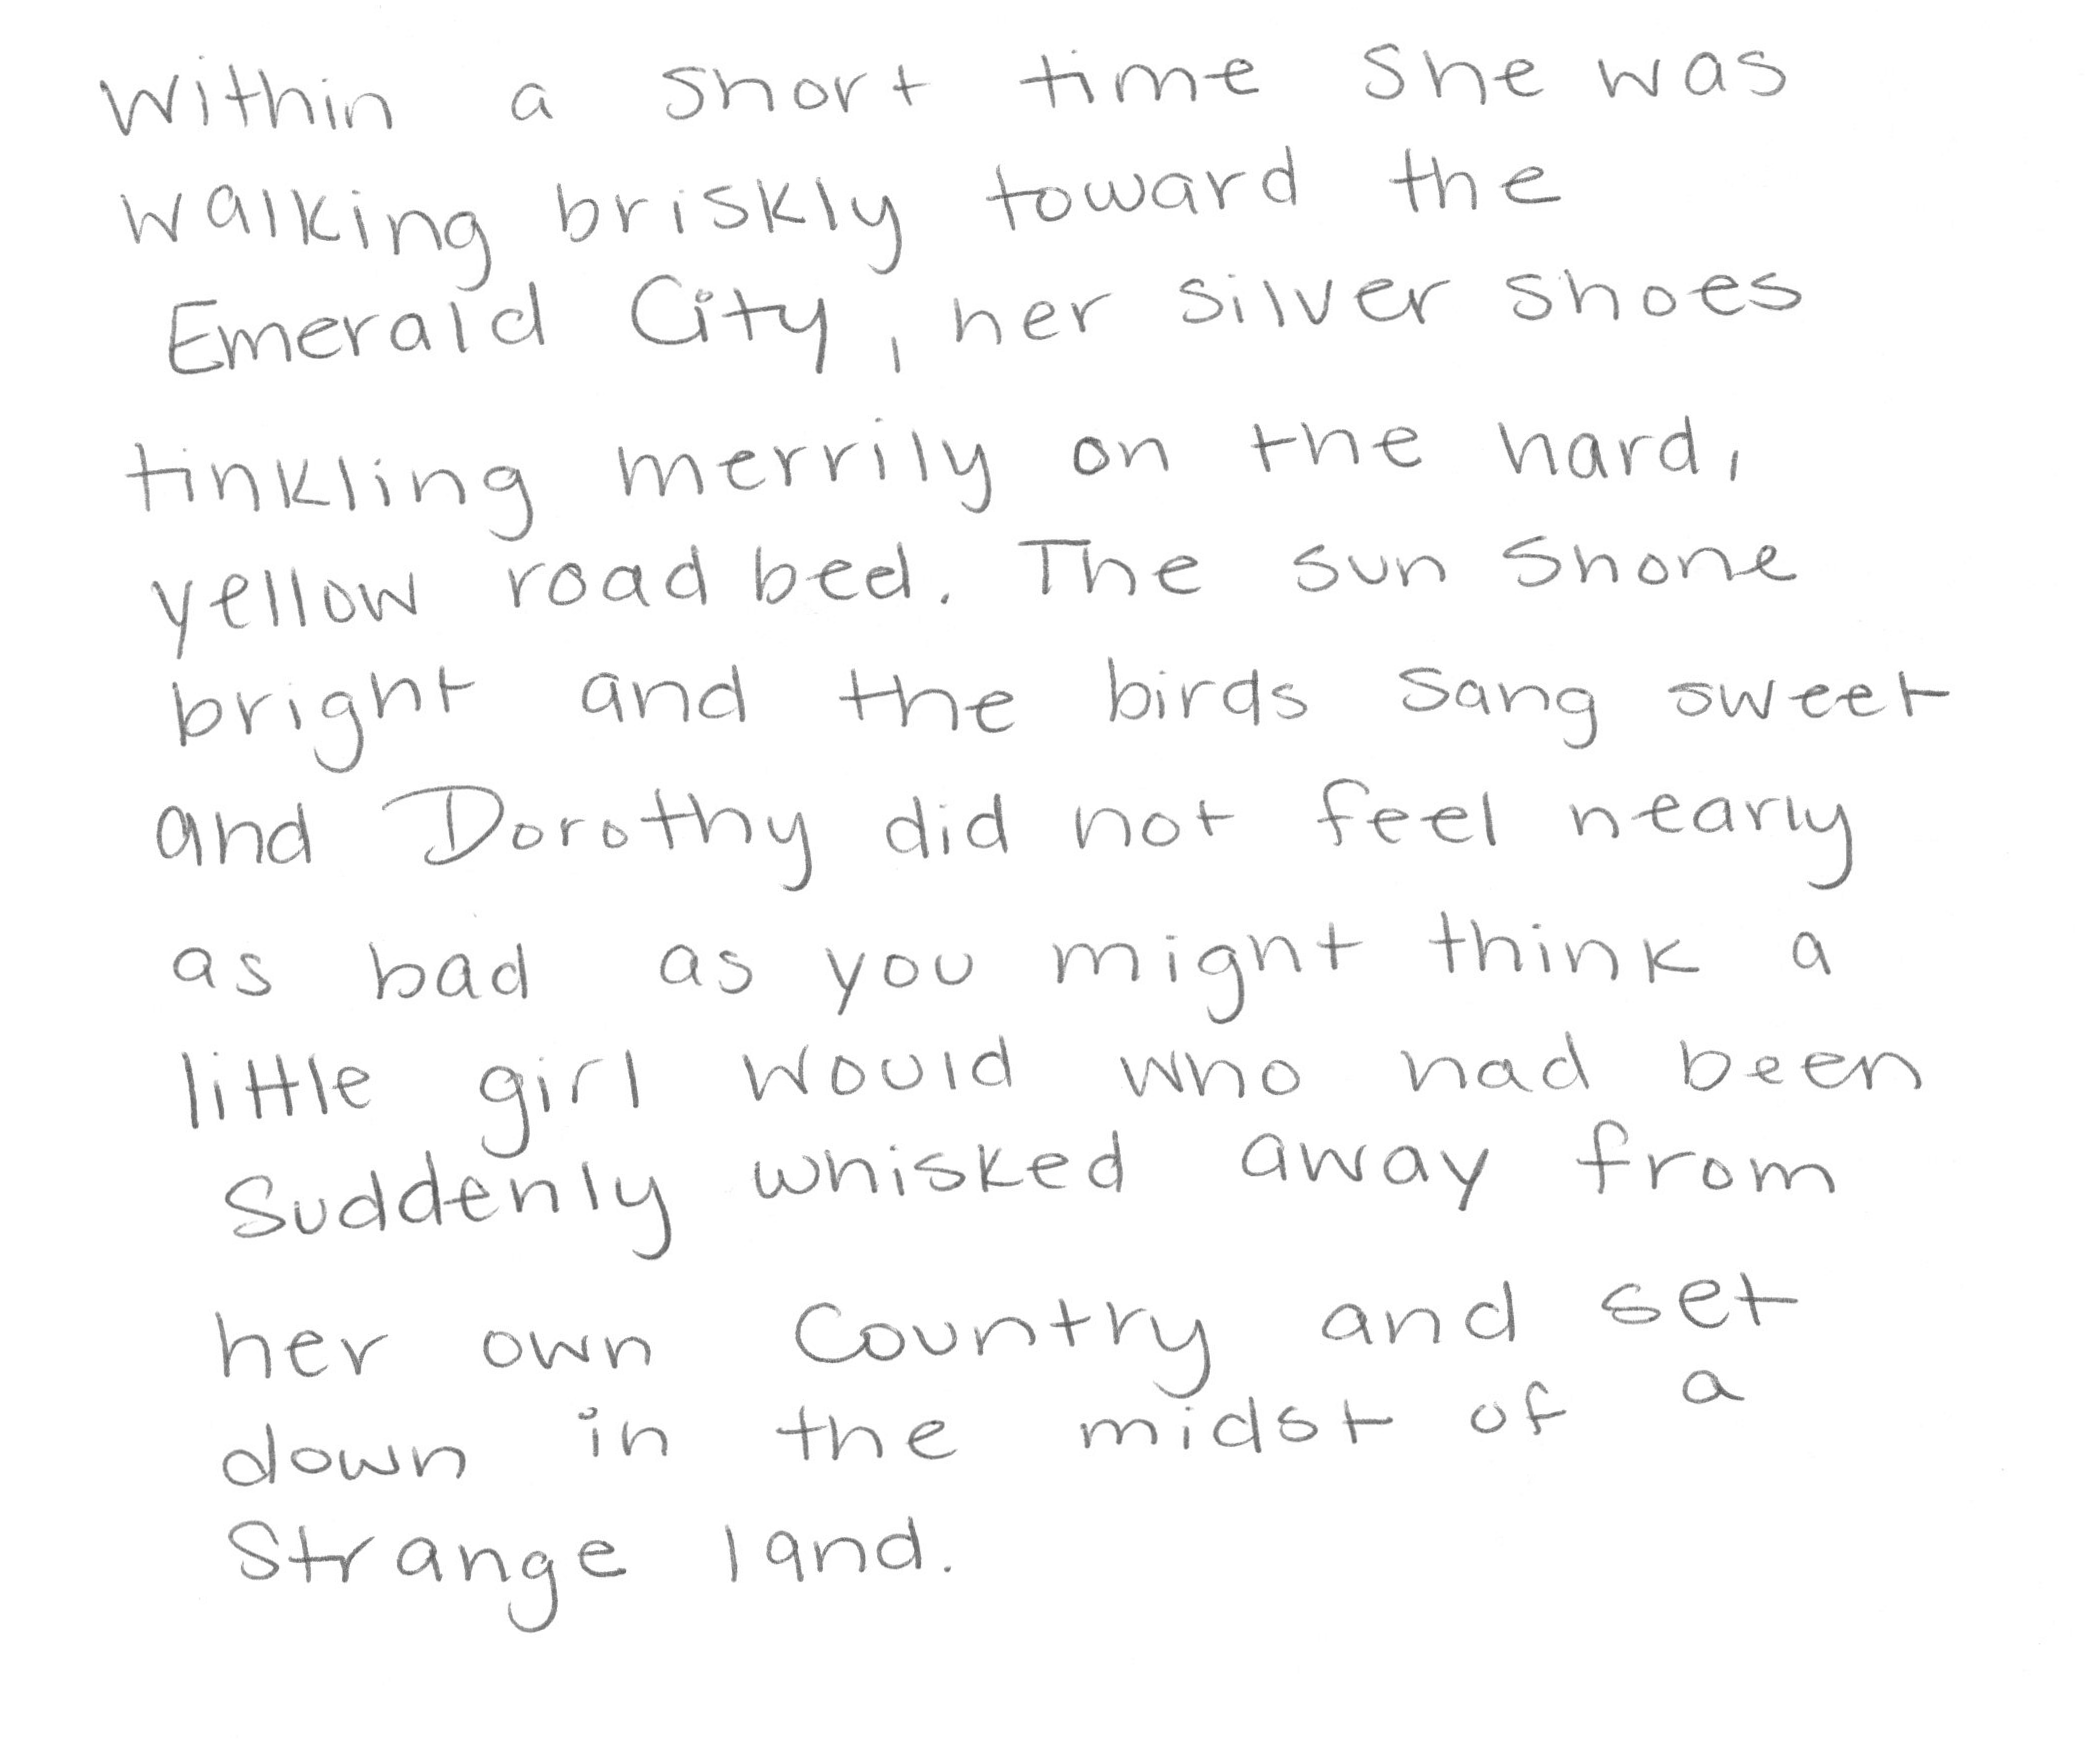 Within a short time she was
walking briskly toward the
Emerald City, her silver shoes
tinkling merrily on the hard,
yellow road bed. The sun shone
bright and the birds sang sweet
and Dorothy did not feel nearly
as bad as you might think a
little girl would who had been
suddenly whisked away from
her own country and set
down in the midst of a
strange land.